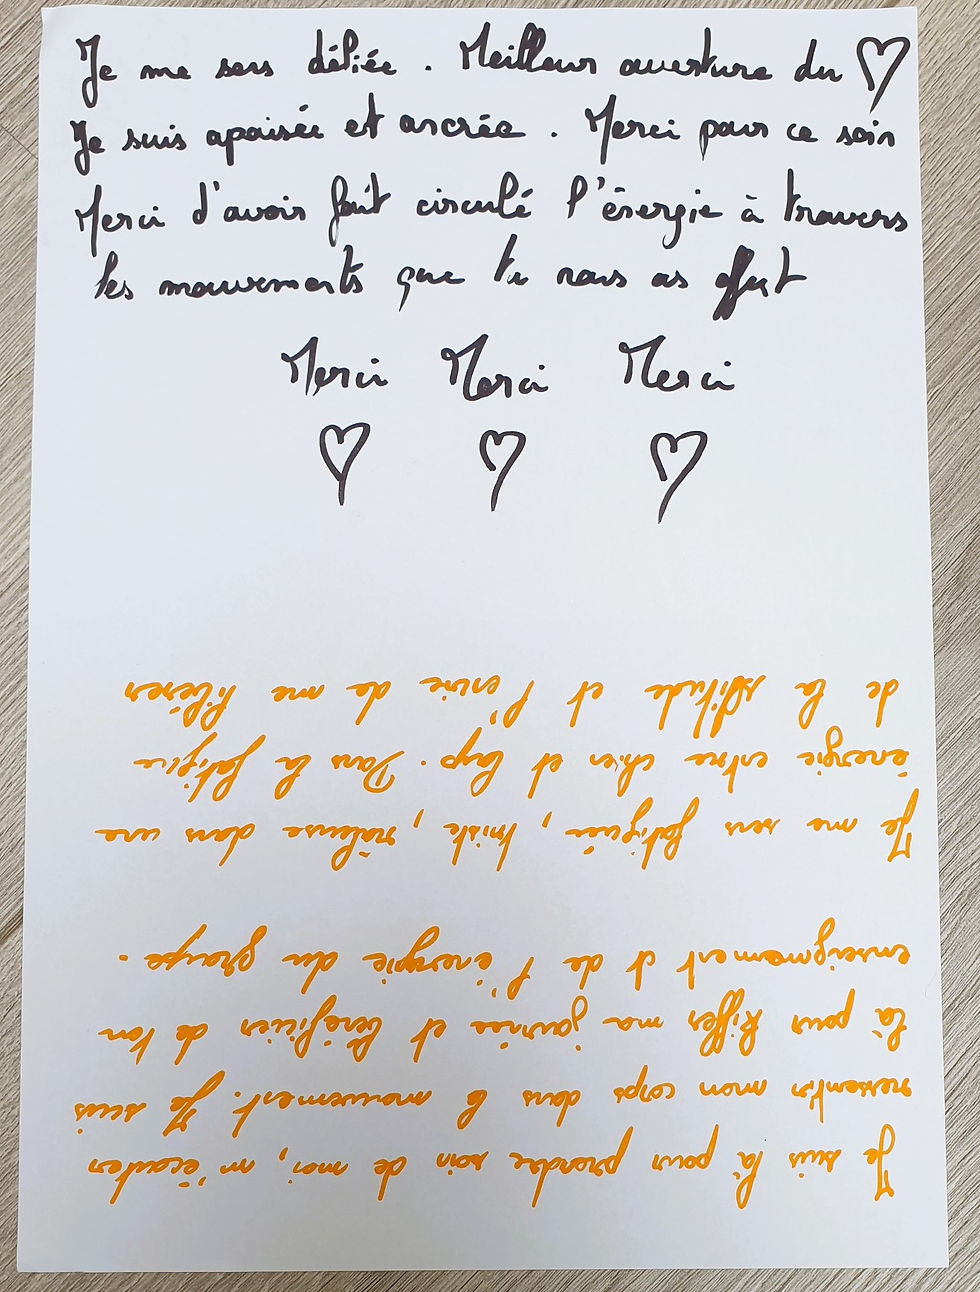 Je me sens déliée . Meilleur ouverture du ♡
Je suis apaisée et ancrée . Merci pour ce soin
Merci d'avoir fait circulé l'énergie à travers
les mouvements que tu nous as offert
Merci Merci Merci
♡ ♡ ♡
Je suis là pour prendre soin de moi, m'écouter
ressentir mon corps dans le mouvement. Je suis
là pour kiffer ma journée et bénéficier de ton
enseignement et de l'énergie du groupe .
Je me sens fatiguée, triste, râleuse dans une
énergie entre chien et loup . Dans la fatigue
de la et l'envie de me libérer